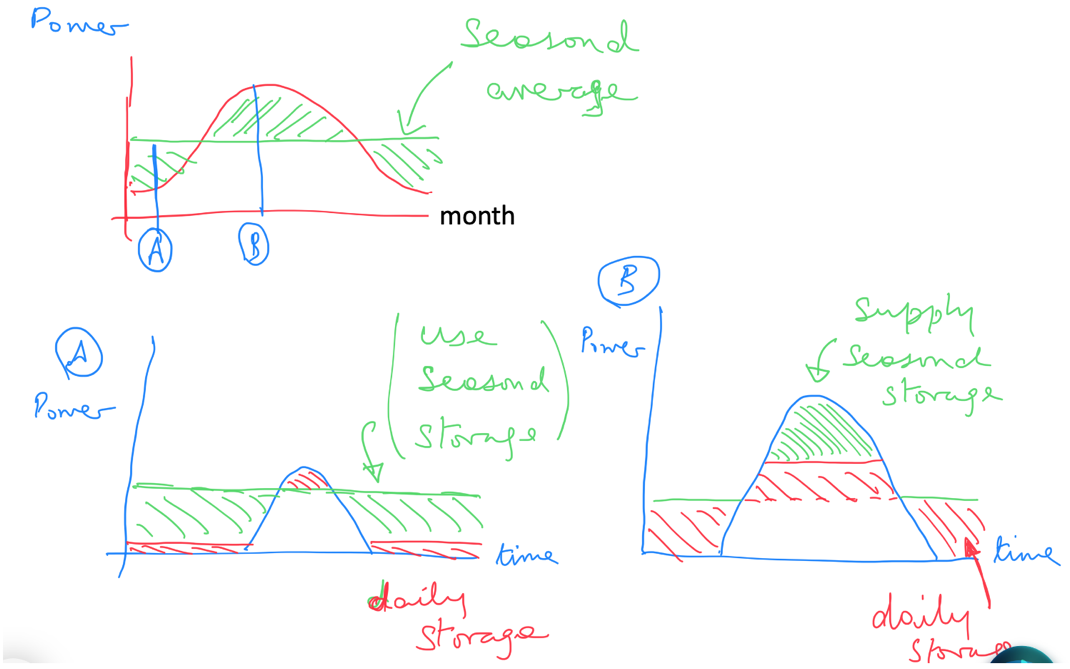 Power
Seasonal
average
month
A
B
A
Power
use
Seasonal
storage
time
daily
storage
B
Power
Supply
Seasonal
storage
time
daily
storage